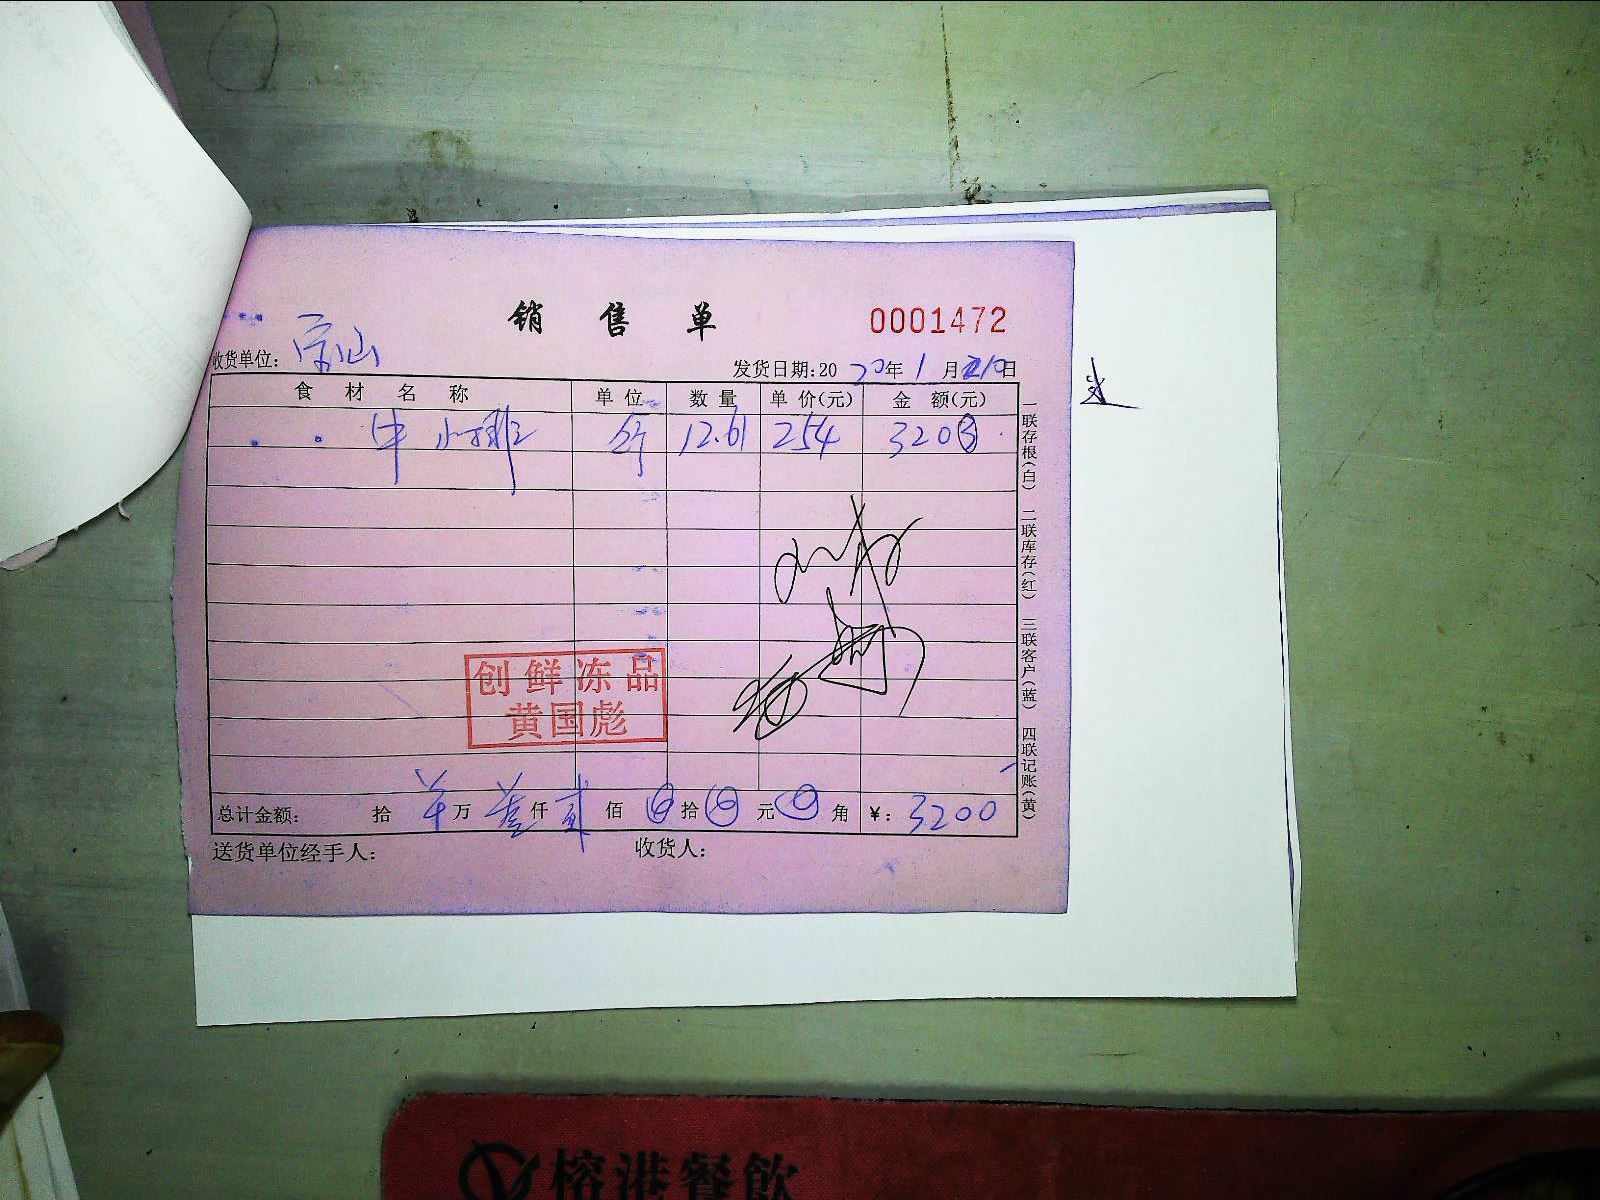 销售单
0001472
收货单位:
发货日期:2020年1月210日
食材名称 单位 数量 单价(元) 金额(元)
牛小排 斤 12.61 254 3203
创鲜冻品
黄国彪
总计金额: 拾 万 叁仟贰佰 拾 元 角 ¥: 3200
送货单位经手人: 收货人:
一联存根(白) 二联库存(红) 三联客户(蓝) 四联记账(黄)
榕港餐飲